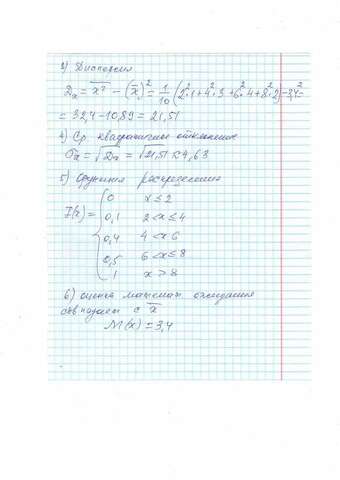 3) Дисперсия
Dₓ = x̄² − (x̄)² = 1/10 (2²·1+4²·3+6²·4+8²·2)−3,4²=
= 32,4−10,89 = 21,51
4) Ср. квадратичное отклонение
σₓ = √Dₓ = √21,51 ≈ 4,63
5) Функция распределения
F(x) = { 0 x ≤ 2
0,1 2 < x ≤ 4
0,4 4 < x 6
0,5 6 < x ≤ 8
1 x > 8
6) оценка математ. ожидания
совпадает с x̄
M(x) = 3,4